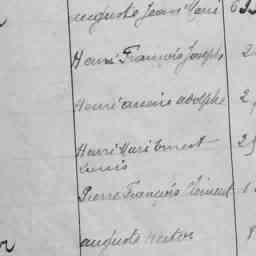 auguste Jean Mari 6
Henri François Joseph 2
Henri amour adolphe 2
Henri Mari Ernest 2
Louis
Pierre François Clément 1
auguste Victor